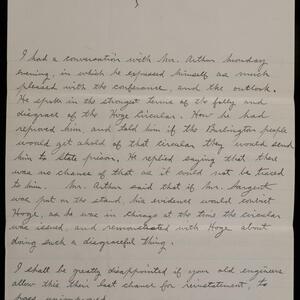 3
I had a conversation with Mr. Arthur Monday
evening, in which he expressed himself as much
pleased with the conference, and the outlook.
He spoke in the strongest terms of the folly and
disgrace of the Hoge Circular. How he had
reproved him, and told him if the Burlington people
would get ahold of that circular they would send
him to State prison. He replied saying that there
was no chance of that as it could not be traced
to him. Mr. Arthur said that if Mr. Sargent
was put on the stand, his evidence would convict
Hoge, as he was in Chicago at the time the circular
was issued, and remonstrated with Hoge about
doing such a disgraceful thing.
I shall be greatly disappointed if your old engineers
allow this their last chance for reinstatement, to
pass unimproved.